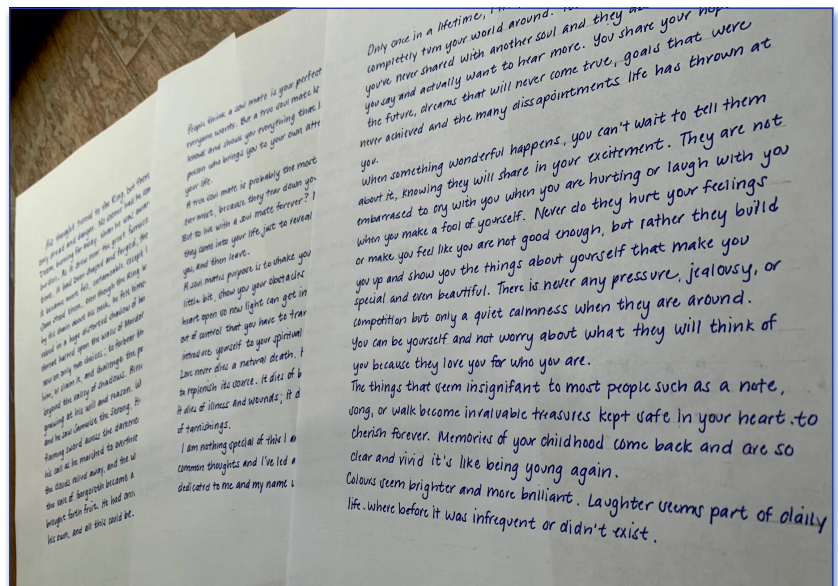 His thought turned to the Ring, but there
only dread and danger. No sooner had he
Doom, burning far away, than he was aware
burden. As it drew near the great furnaces
time, it had been shaped and forged, the
it became more fell, untameable except
Sam stood there, even though the Ring
by its chain about his neck, he felt
robed in a huge distorted shadow of his
threat halted upon the walls of Mordor
now on only two choices: to forbear the
him; or claim it, and challenge the
beyond the valley of shadows.
gnawing at his will and reason.
and he saw Samwise the Strong,
flaming sword across the
his call as he marched to
the clouds rolled away, and the
the vale of Gorgoroth became a
brought forth fruit. He had
his own, and all this could be.
People think a soul mate is your perfect
everyone wants. But a true soul mate is
knows and shows you everything that
person who brings you to your own
your life.
A true soul mate is probably the most
ever meet, because they tear down
But to live with a soul mate forever?
they come into your life just to reveal
you, and then leave.
A soul mates purpose is to shake you
little bit, show you your obstacles
heart open so new light can get in
out of control that you have to
introduce yourself to your spiritual
Love never dies a natural death.
to replenish its source. It dies of
It dies of illness and wounds; it
of tarnishings.
I am nothing special of this I
common thoughts and I've led a
dedicated to me and my name
Only once in a lifetime,
completely turn your world around.
you've never shared with another soul and they
you say and actually want to hear more. You share your
the future, dreams that will never come true, goals that were
never achieved and the many dissapointments life has thrown at
you.
When something wonderful happens, you can't wait to tell them
about it, knowing they will share in your excitement. They are not
embarrased to cry with you when you are hurting or laugh with you
when you make a fool of yourself. Never do they hurt your feelings
or make you feel like you are not good enough, but rather they build
you up and show you the things about yourself that make you
special and even beautiful. There is never any pressure, jealousy, or
competition but only a quiet calmness when they are around.
You can be yourself and not worry about what they will think of
you because they love you for who you are.
The things that seem insignifant to most people such as a note,
song, or walk become invaluable treasures kept safe in your heart to
cherish forever. Memories of your childhood come back and are so
clear and vivid it's like being young again.
Colours seem brighter and more brilliant. Laughter seems part of daily
life. where before it was infrequent or didn't exist.